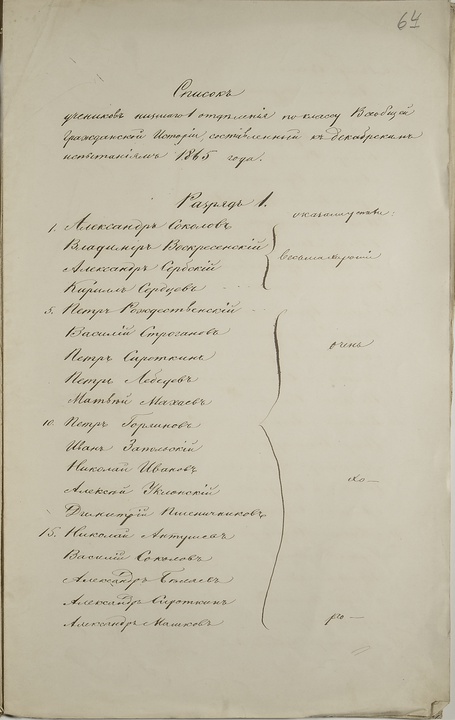 64
Списокъ
учениковъ низшаго 1 отдѣленія по классу Всеобщей
Гражданской Исторіи, составленный къ декабрскимъ
испытаніямъ 1865 года.
Разрядъ 1.
оказали успѣхи:
1. Александръ Соколовъ
Владиміръ Воскресенскій
Александръ Сербскій
весьма хорошіе
Кириллъ Сердцовъ
5. Петръ Рождественскій
Василій Строгановъ
Петръ Сироткинъ
очень
Петръ Лебедевъ
Матвѣй Махаевъ
10. Петръ Горлиновъ
Иванъ
Николай Ивановъ
Алексѣй
хо—
Димитрій Пшеничниковъ
15. Николай Антушевъ
Василій Соколовъ
Александръ
Александръ Сироткинъ
Александръ Машковъ
ро—